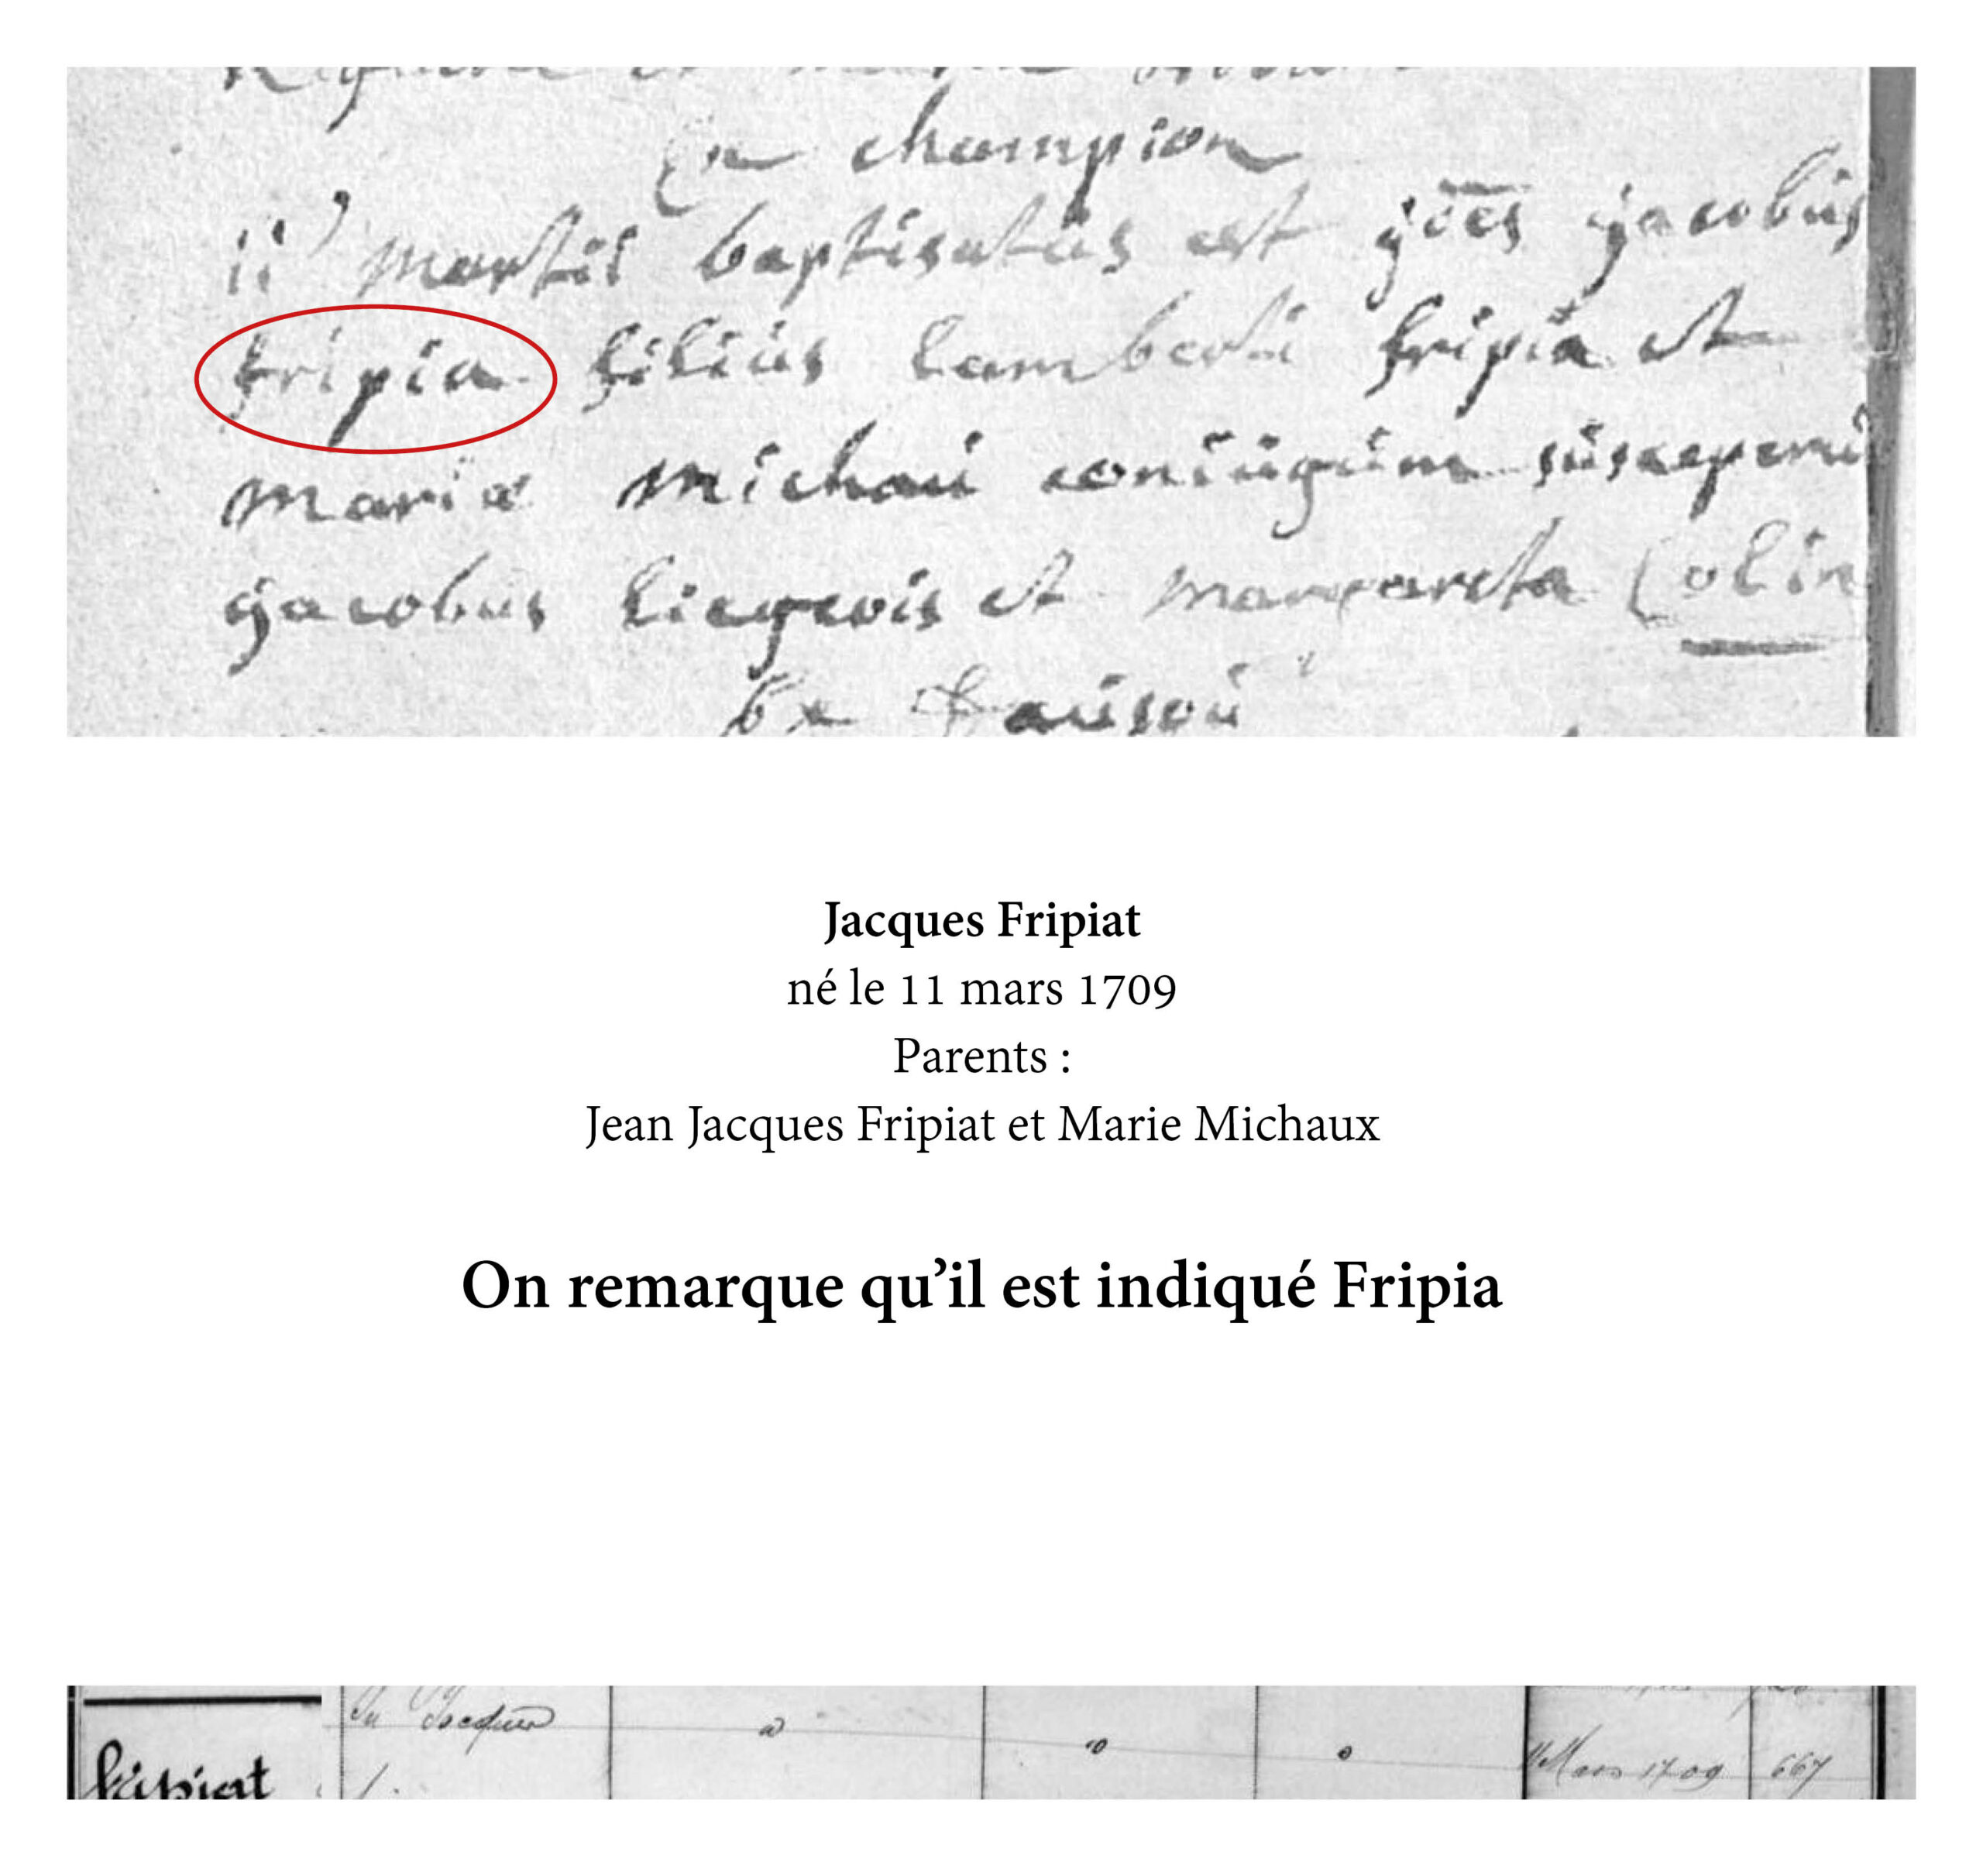 En champion
ii martis baptisatus est joẽs jacobus
fripia filius Lamberti fripia et
maria michaui coniugum susceperu
jacobus Liegeois et margareta Colin
Ex Dausoù
Jacques Fripiat
né le 11 mars 1709
Parents :
Jean Jacques Fripiat et Marie Michaux
On remarque qu’il est indiqué Fripia
Jn Jacques
fripiat 11 Mars 1709 667